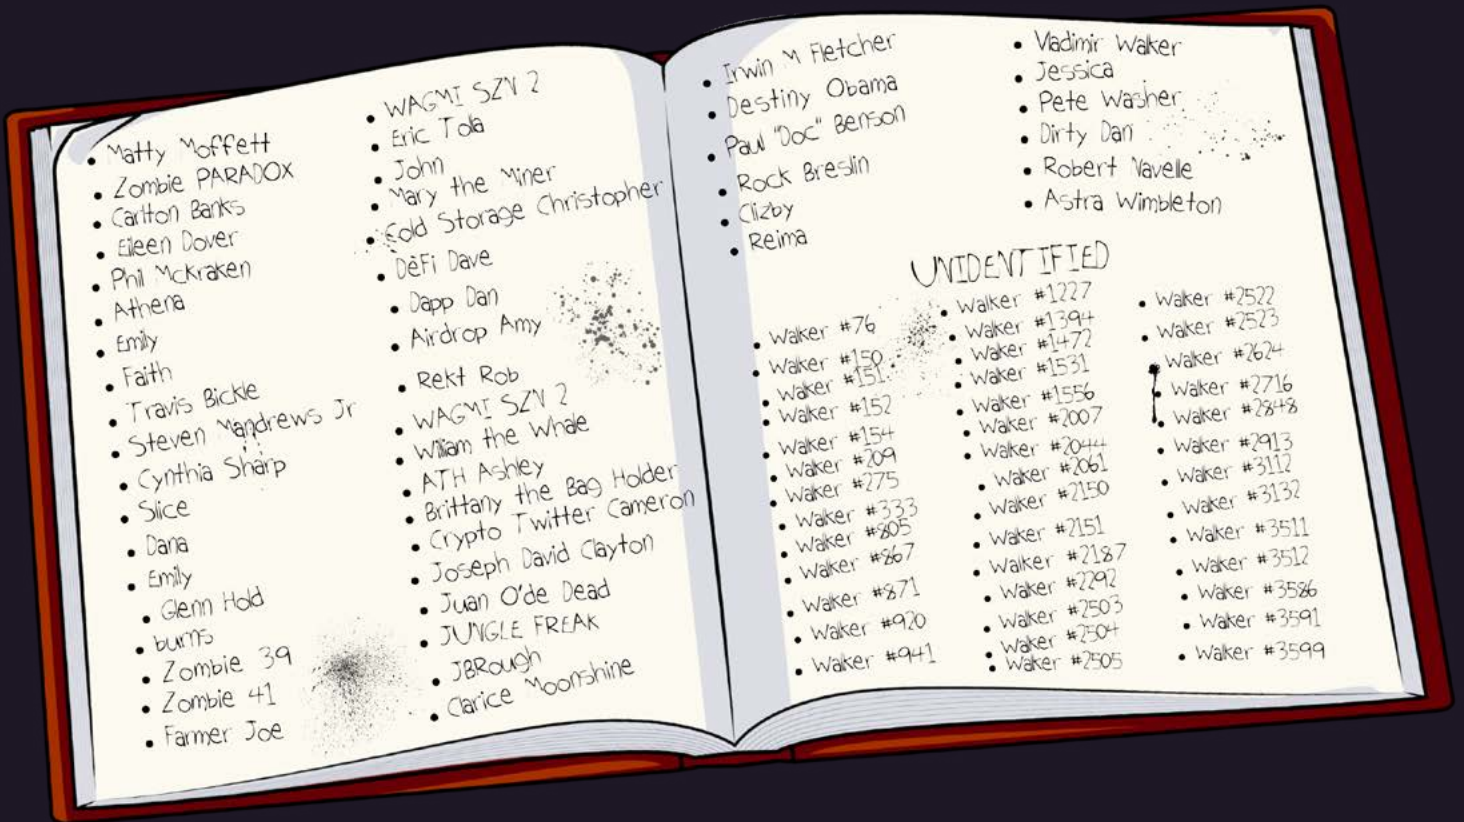 • Matty Moffett
• Zombie PARADOX
• Carlton Banks
• Eileen Dover
• Phil McKraken
• Athena
• Emily
• Faith
• Travis Bickle
• Steven Mandrews Jr
• Cynthia Sharp
• Slice
• Dana
• Emily
• Glenn Hold
• burns
• Zombie 39
• Zombie 41
• Farmer Joe
• WAGMI SZN 2
• Eric Tola
• John
• Mary the Miner
• Cold Storage Christopher
• DeFi Dave
• Dapp Dan
• Airdrop Amy
• Rekt Rob
• WAGMI SZN 2
• William the Whale
• ATH Ashley
• Brittany the Bag Holder
• Crypto Twitter Cameron
• Joseph David Clayton
• Juan O'de Dead
• JUNGLE FREAK
• JBRough
• Clarice Moonshine
• Irwin M Fletcher
• Destiny Obama
• Paul "Doc" Benson
• Rock Breslin
• Clizby
• Reima
• Vladimir Walker
• Jessica
• Pete Washer
• Dirty Dan
• Robert Navelle
• Astra Wimbleton
UNIDENTIFIED
• Walker #76
• Walker #150
• Walker #151
• Walker #152
• Walker #154
• Walker #209
• Walker #275
• Walker #333
• Walker #805
• Walker #867
• Walker #871
• Walker #920
• Walker #941
• Walker #1227
• Walker #1394
• Walker #1472
• Walker #1531
• Walker #1556
• Walker #2007
• Walker #2044
• Walker #2061
• Walker #2150
• Walker #2151
• Walker #2187
• Walker #2292
• Walker #2503
• Walker #2504
• Walker #2505
• Walker #2522
• Walker #2523
• Walker #2624
• Walker #2716
• Walker #2848
• Walker #2913
• Walker #3112
• Walker #3132
• Walker #3511
• Walker #3512
• Walker #3586
• Walker #3591
• Walker #3599